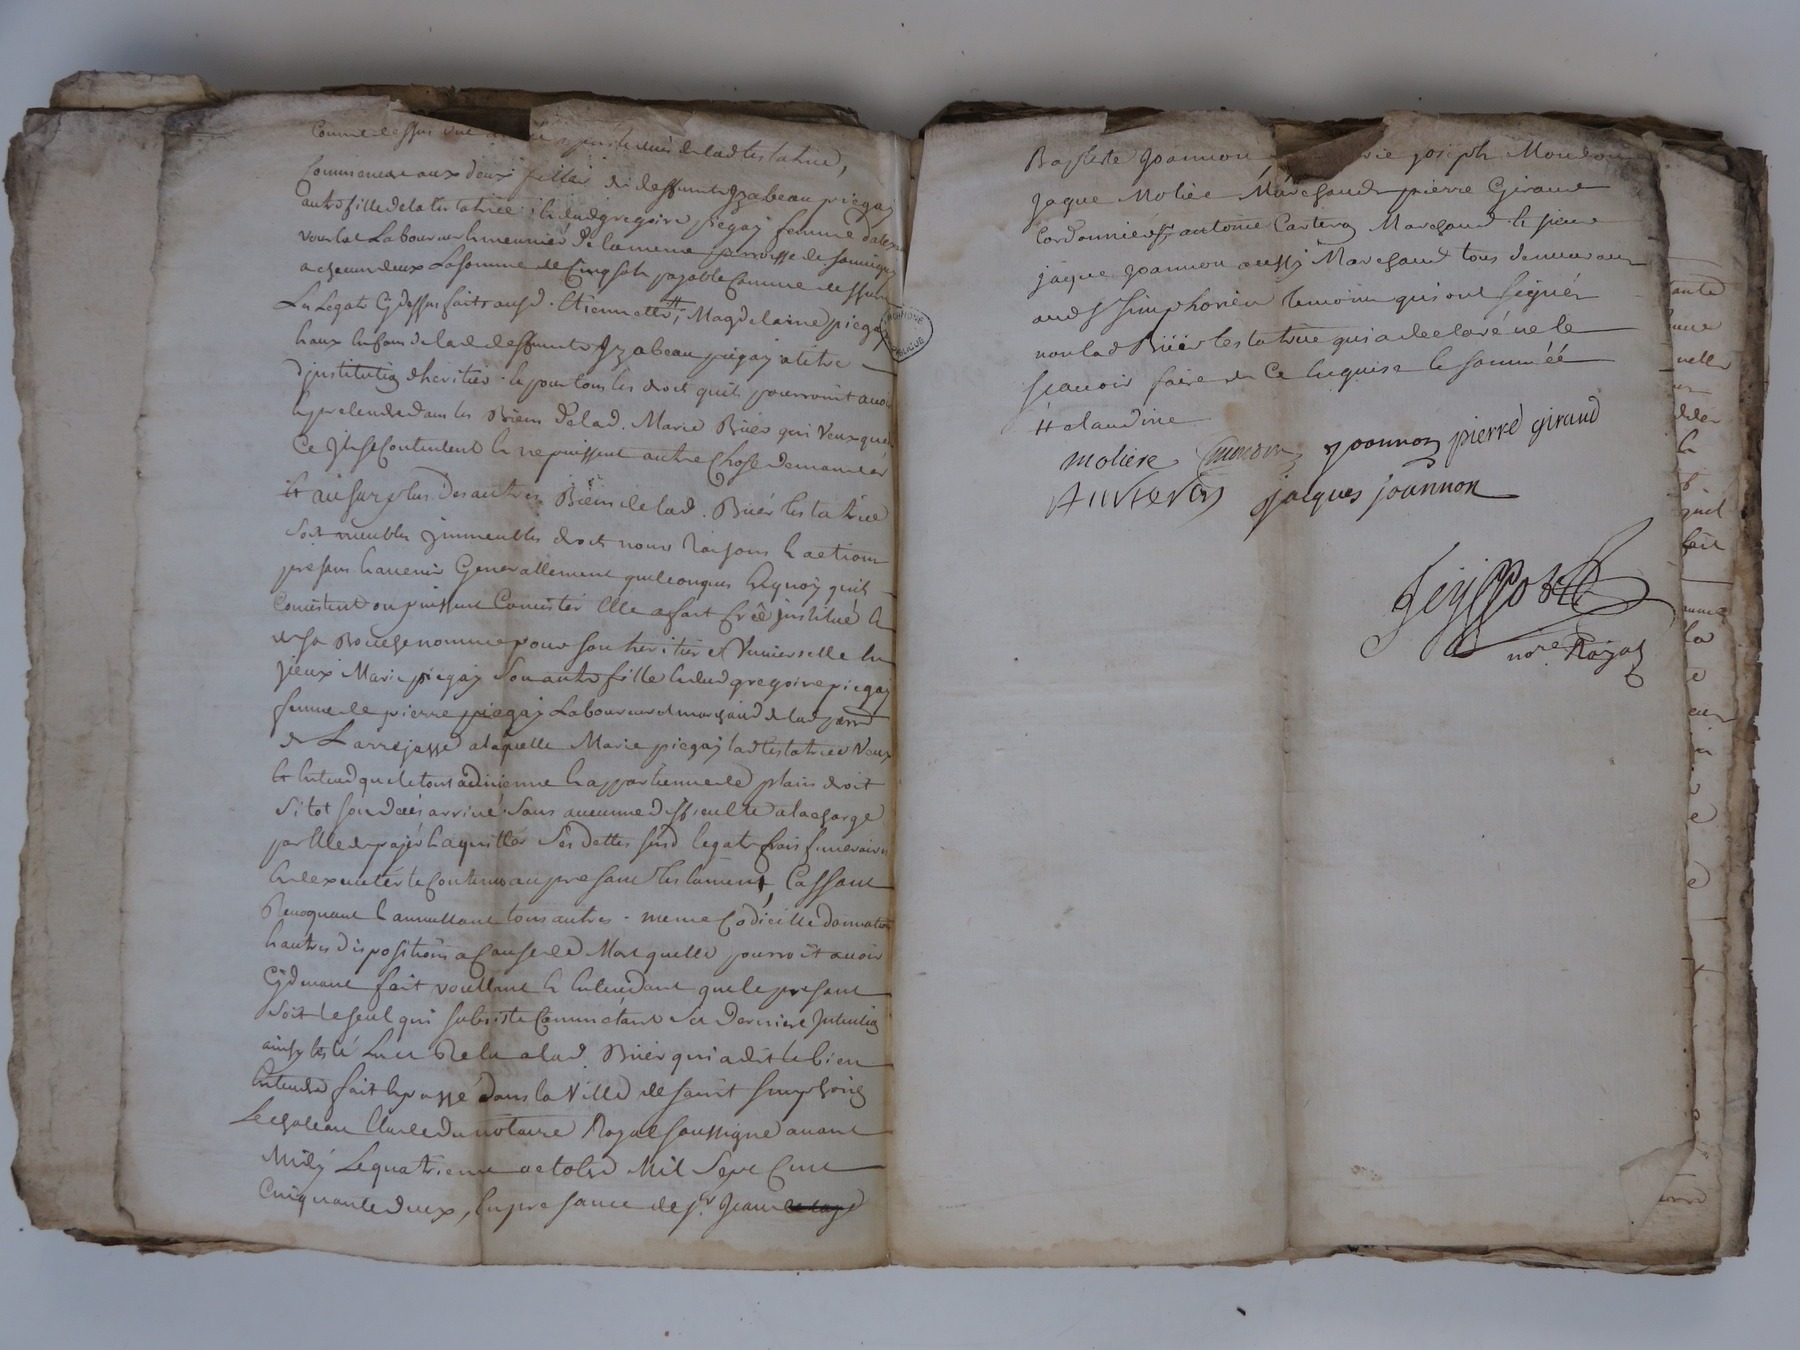 comme dessus une de ladte testatrice,
comme aux deux filles de deffunte Yzabeau piegay
autre fille de la testatrice et dud gregoire piegay femme
Laboureur meunier de la meme parroisse de
a chacun deux La somme de Cinq sols payable comme dessus
Les Legats Cydessus faits aud. Etiennette, Magdelaine piegay
enfans de lad deffunte Yzabeau piegay a titre
d'jnstitution d'heritier et pour tous les droit quils pourroint avoir
et pretendre dans les Biens de lad. Marie Buer qui Veux que
Ce se Contentent et ne puissent autre Chose demander
Et au surplus des autres Biens de lad. Buer testatrice
soit meubles jmmeubles droits noms raisons et actions
presans et avenir Generallement quelconques en quoy quils
Consistent ou puissent Consister Elle a fait créé jnstitué et
de sa Bouche nommé pour son heritier et Vuniverselle en
jceux Marie piegay son autre fille et dud gregoire piegay
femme de pierre piegay Laboureur et marchand de lad parr
de Larrejasse a laquelle Marie piegay lad testatrice Veux
Et Entend que le tout advienne et appartienne de plain droit
si tot son deces arrivé sans aucunne difficulté a la charge
par Elle de payer et aquitter ses dettes susd legats frais funeraires
et dexecuter le Contenu au presant testament, Cassant
Revoquant et annullant tous autres meme Codicille donnation
et autres dispositions a Cause de Mort quelle pourroit avoir
Cydevant fait voullant et Entendant que le presant
soit le seul qui subsiste Comme étant sa derniere jntention
ainsy testé Lu et Relu a lad. Buer qui a dit le bien
Entendre fait et passé dans la Ville de saint simphorien
Le chateau Etude du notaire Royal soussigné avant
Midy Le quatrieme octobre Mil sept Cent
Cinquante deux, En presance de sr Jean
Baptiste Joannon, joseph Mondon
jaque Moliere Marchand pierre Giraud
Cordonnier, antoine Marchand et sieur
jaque Joannon aussy Marchand tous demeurant
aud St simphorien temoins qui ont signés
non lad Buer testatrice qui a declaré ne le
scavoir faire de Ce Enquise et sommée
# claudine
moliere mondon Joannon pierre giraud
jacques joannon
nore. Royal